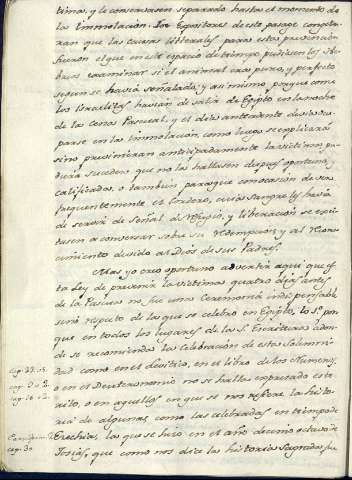 tima, y le conservasen separado hasta el momento de
la Immolacion. Los Expositores de este pasage congetu-
ran que las causas litterales para esta prevencion
fueron el que en este espacio de tiempo pudiesen los He-
breos examinar si el animal era puro, y perfecto
segun se havia señalado; y asi mismo, porque como
los Israelitas havian de salir de Egipto en la noche
de la Cena Pascual, y el dia antecedente
parse en la Immolacion, como luego se explicará
sino previnieran anticipadamente la victima, po-
dria suceder que no la hallasen despues oportuna, y
calificada. o tambien para que con ocasion de ver
frequentemente el Cordero, cuia Sangre les havia
de servir de Señal de refugio, y liberacion se exci-
tasen a conversar sobre su redempcion, y al
cimiento devido al Dios de sus Padres.
Mas yo creo oportuno advertir aqui que es-
ta Ley de prevenir la Victima quatro dias antes
de la Pascua no fue una Ceremonia indispensable
sino respeto de la que se celebro en Egipto, lo 1.º por
que en todos los lugares de las S. Escrituras adon-
de se recomienda la Celebracion de esta Solemni-
cap. 23. v.
dad como en el Levitico, en el libro de los Numeros,
cap. 9. v. 2.
o en el Deuteronomio no se halla expresado este
cap. 16. v. 2.
rito, o en aquellos en que se nos refiere la histo-
ria de algunas, como las celebradas en tiempo de
cap. 30
Ezechias, la que se hizo en el año decimo octavo de
Josias, que como nos dice la historia Sagrada, fue